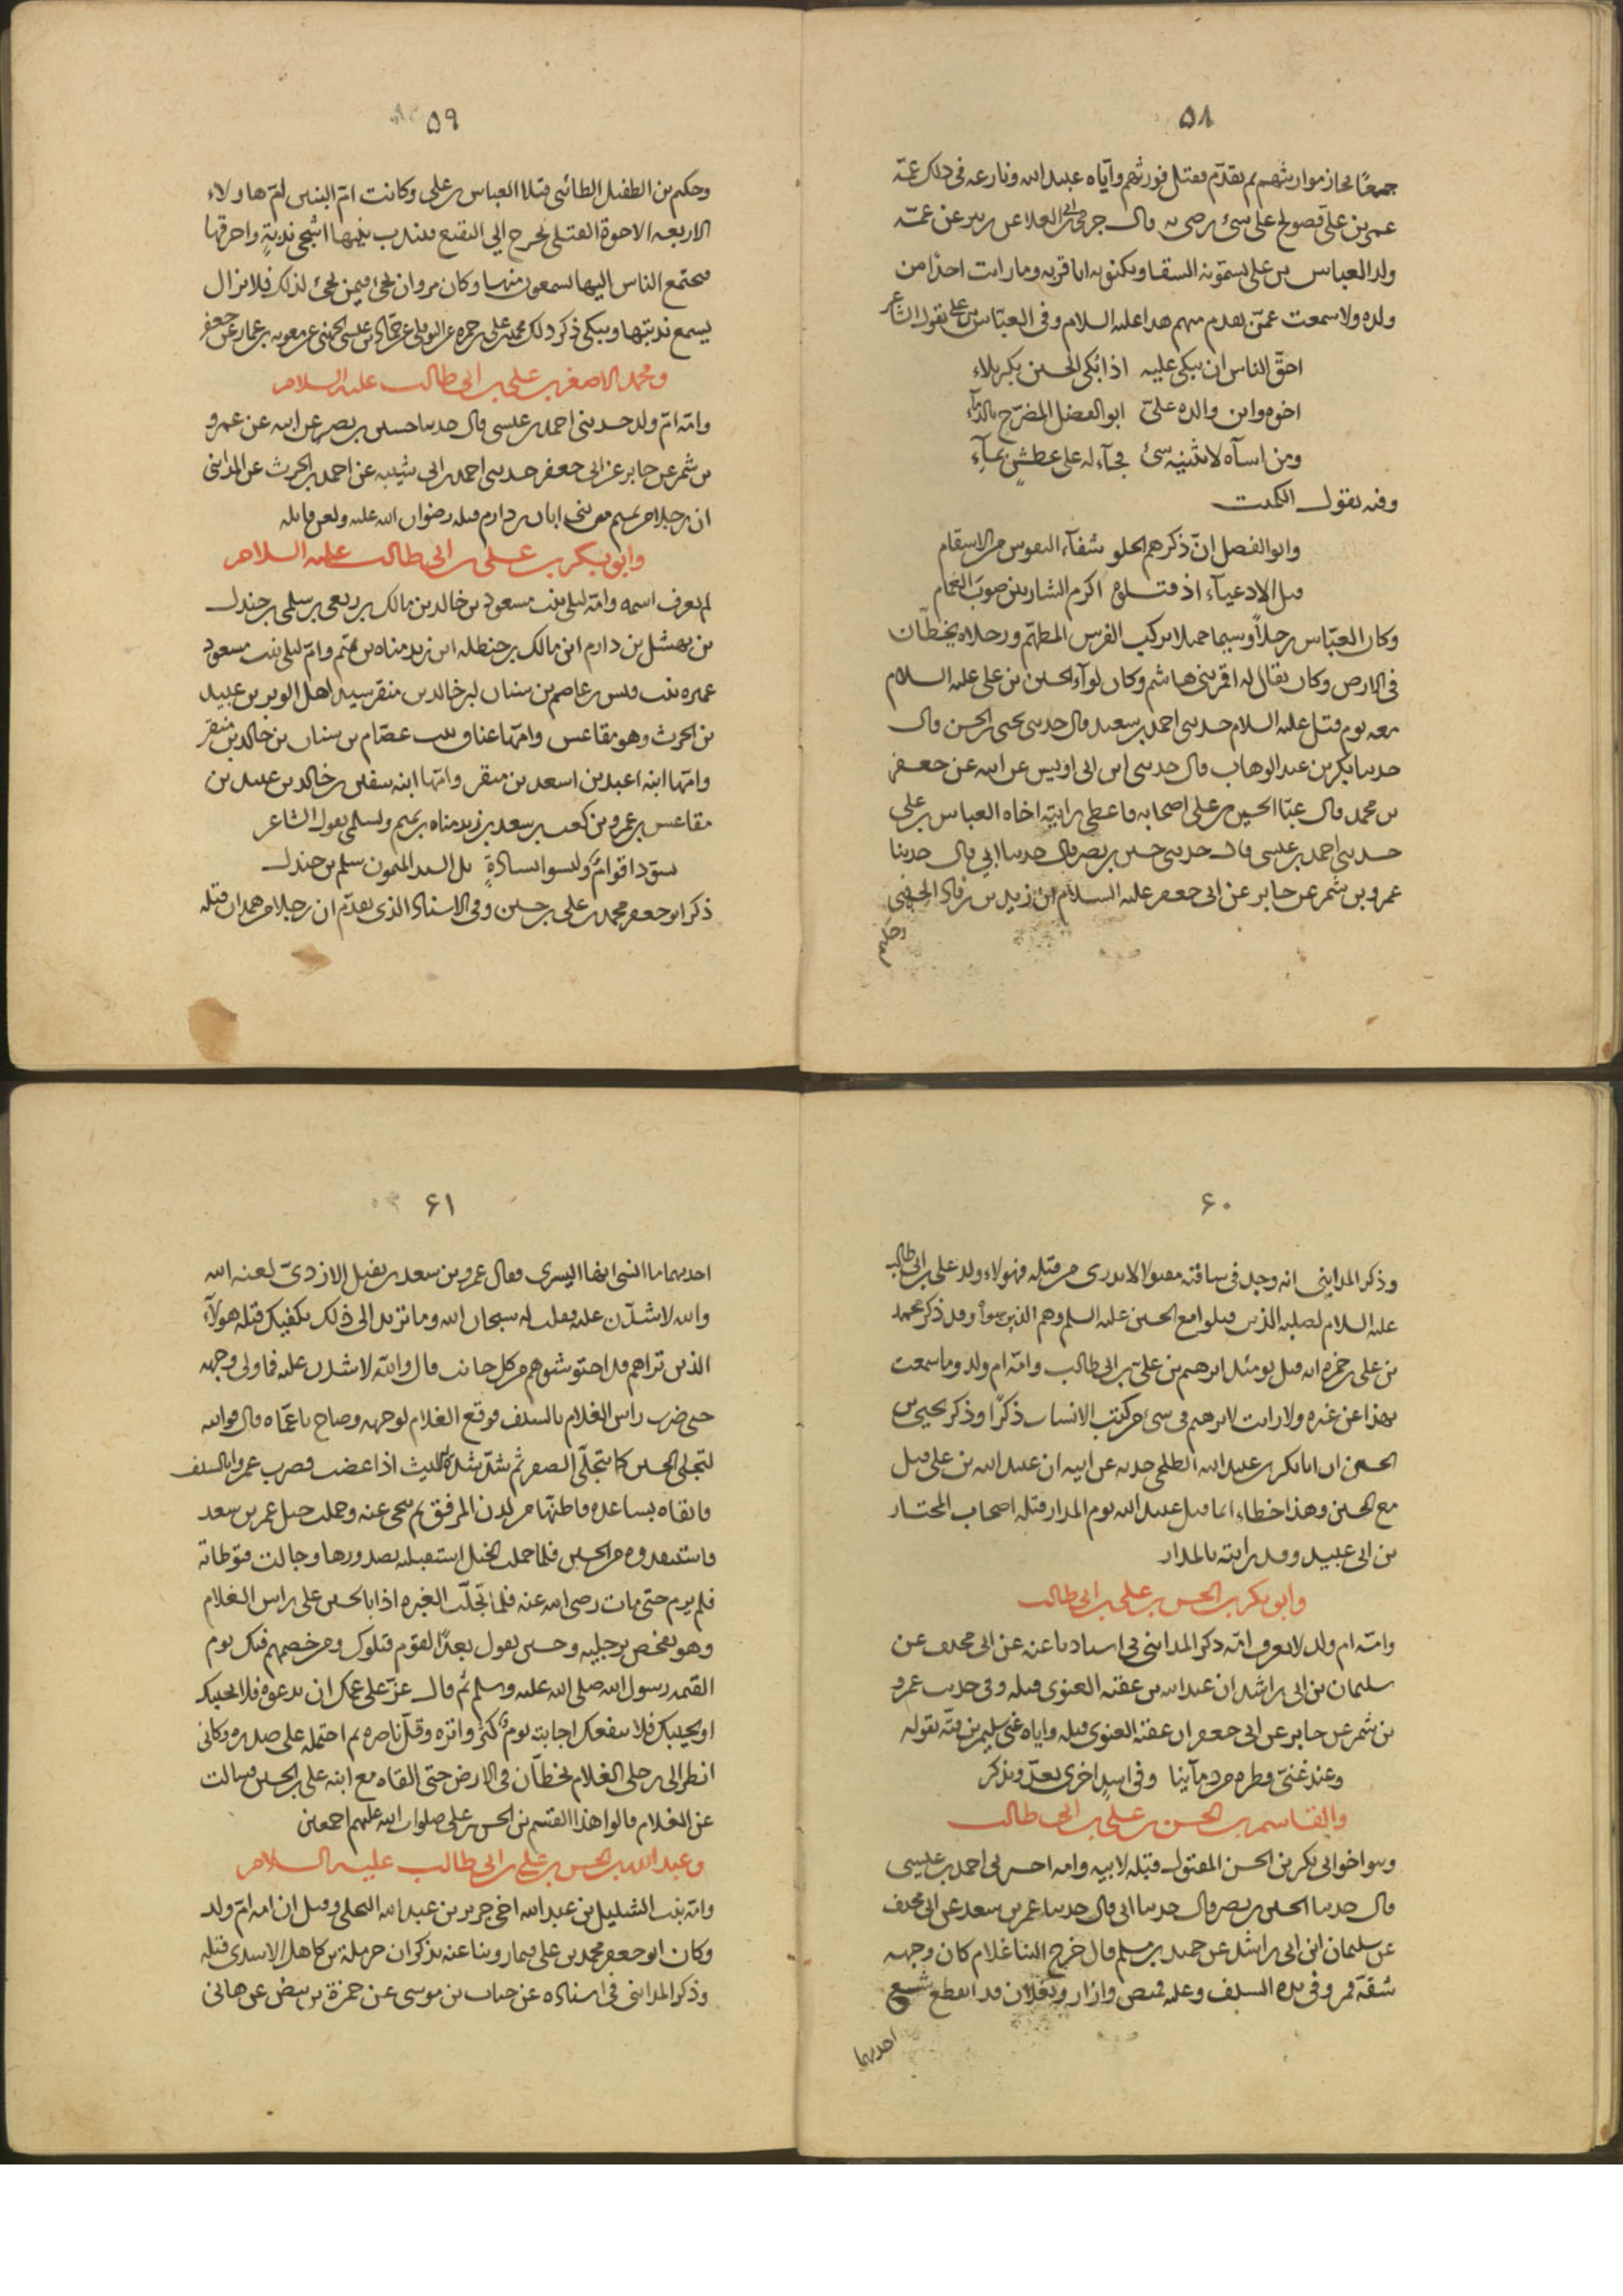 ٥٨
جميعًا فحاز مواريثهم ثم تقدّم فقتل فورثهم وآيّاه عبيد الله ونازعه في ذلك عمّه
عمر بن علي فصولح على شئ رضى به قال جرمى ابن ابى العلا عن زبير عن عمّه
ولد العباس بن على يسمّونه السقا ويكنونه ابا قربه وما رايت احدًا من
ولده ولا سمعت عمّن تقدم منهم هذا عليه السلام وفي العباس بن على يقول الشاعر
احقّ الناس ان يبكى عليه اذا بُكى الحسين بكربلاء
اخوه وابن والده علىّ ابو الفضل المضرّج بالدّمآء
ومن اسآه لا يثنيه شئ فجآء له على عطشٍ بمآءِ
وفيه يقول الكميت
وابو الفضل انّ ذكرهم الحلو شفآء النفوس من الاسقام
قبل الادعيآء اذ قتلوه اكرم الشاربين صوبَ الغمام
وكان العبّاس رجلًا وسيمًا جميلا يركب الفرس المطهّم ورجلاه يخطّان
في الارض وكان يقال له قمر بني هاشم وكان لوآء الحسين بن على عليه السلام
معه يوم قتل عليه السلام حدثني احمد بن سعيد قال حدثني يحيى بن الحسن قال
حدثنا بكر بن عبد الوهاب قال حدثني ابن ابى اويس عن ابيه عن جعفر
بن محمد قال عبّا الحسين بن على اصحابه فاعطى رايته اخاه العباس بن على
حدثني احمد بن عيسى قال حدثني حسين بن نصر قال حدثنا ابي قال حدثنا
عمرو بن شمر عن جابر عن ابى جعفر عليه السلام ان زيد بن رقاد الجهنى
٥٩
وحكيم بن الطفيل الطائى قتلا العباس بن على وكانت امّ البنين امّ هاولاء
الاربعه الاخوة القتلى تخرج الى البقيع فتندب بنيها اشجى ندبةٍ واحرقها
فيجتمع الناس اليها يسمعون منها وكان مروان يجئ فيمن يجئ لذلك فلا يزال
يسمع ندبتها ويبكى ذكر ذلك محمد بن على بن حمزه عن النوفلى عن حمّاد بن عيسى الجهنى عن معويه بن عمار عن جعفر
ومحمد الاصغر بن على بن ابى طالب عليه السلام
وامّه امّ ولد حدثنى احمد بن عيسى قال حدثنا حسين بن نصر عن ابيه عن عمرو
بن شمر عن جابر عن ابى جعفر حدثنى احمد بن ابى شيبه عن احمد بن الحرث عن المداينى
ان رجلا من تميم من بنى ابان بن دارم قتله رضوان الله عليه ولعن قاتله
وابو بكر بن على بن ابى طالب عليه السلام
لم يعرف اسمه وامّه ليلى بنت مسعود بن خالد بن مالك بن ربعى بن سلمى بن جندل
بن نهشل بن دارم ابن مالك بن حنظله ابن زيد مناه بن تميم وامّ ليلى بنت مسعود
عميره بنت قيس بن عاصم بن سنان بن خالد بن منقر سيد اهل الوبر بن عبيد
بن الحرث وهو مقاعس وامّها عناق بنت عصّام بن سنان بن خالد بن منقر
وامّها ابنه اعبد بن اسعد بن منقر وامّها ابنه سفين بن خالد بن عبيد بن
مقاعس بن عمرو بن كعب بن سعد بن زيد مناه بن تميم ولسلمى يقول الشاعر
يسوّد اقوامٌ وليسوا بسادةٍ بل السيد الميمون سلم بن جندل
ذكر ابو جعفر محمد بن على بن حسين وفي الاسناد الذى تقدّم ان رجلا من همدان قتله
٦٠
وذكر المداينى انه وجد في ساقته مقتولا لا يدرى من قتله فهولاء ولد على بن ابى طالب
عليه السلام لصلبه الذين قتلوا مع الحسين عليه السلم وهم الذين سواه وقد ذكر محمد
بن على بن حمزه انه قتل يومئذ ابرهيم بن على بن ابى طالب وامّه ام ولد وما سمعت
بهذا عن غيره ولا رايت لابرهيم في شئ من كتب الانساب ذكرًا وذكر يحيى بن
الحسين ان ابا بكر بن عبيد الله الطلحى حدثه عن ابيه ان عبيد الله بن على قتل
مع الحسين وهذا خطاء انما قتل عبيد الله يوم المدار قتله اصحاب المختار
بن ابى عبيد وقد رايته بالمدار
وابو بكر بن الحسن بن على بن ابى طالب
وامّه ام ولد لا يعرف امّه ذكر المداينى في اسنادنا عنه عن ابى مخنف عن
سليمان بن ابى راشد ان عبد الله بن عقبه الغنوى قتله وفي حديث عمرو
بن شمر عن جابر عن ابى جعفر ان عقبة الغنوى قتله واياه عنى سليمن بن قتّه بقوله
وعند غنىّ قطره من دمآينا وفي اسدٍ اخرى تعدّ وتذكر
والقاسم بن الحسن بن على بن ابى طالب
وهو اخو ابى بكر بن الحسن المقتول قبله لابيه وامه اخبرنى احمد بن عيسى
قال حدثنا الحسين بن نصر قال حدثنا ابى قال حدثنا عمر بن سعد عن ابى مخنف
عن سليمان ابن ابى راشد عن حميد بن مسلم قال خرج الينا غلام كان وجهه
شقة قمر وفي يده السيف وعليه قميص وازار ونعلان قد انقطع شسع
احديهما
٦١
احديهما ما انسى انها اليسرى فقال عمرو بن سعد بن نفيل الازدىّ لعنه الله
والله لاشدّن عليه فقلت له سبحان الله وما تريد الى ذلك يكفيك قتله هولآء
الذين تراهم قد احتوشوهم من كل جانب قال والله لاشدن عليه فما ولى وجهه
حتى ضرب راس الغلام بالسيف فوقع الغلام لوجهه وصاح يا عمّاه قال فوالله
لتجلى الحسين كما يتجلّى الصقر ثم شدّ شدّ الليث اذا غضب فضرب عمروا بالسيف
فاتقاه بساعده فاطنّها من لدن المرفق ثم تنحى عنه وحملت خيل عمر بن سعد
فاستنقذوه من الحسين فلما حملت الخيل استقبلته بصدورها وجالت فتوطاته
فلم يرم حتى مات رضى الله عنه فلما تجلّت الغبره اذا بالحسين على راس الغلام
وهو يفحص برجليه وحسين يقول بعدًا لقوم قتلوك ومن خصمهم فيك يوم
القيمه رسول الله صلى الله عليه وسلم ثم قال عزّ على عمك ان تدعوه فلا يجيبك
او يجيبك فلا ينفعك اجابته يوم كثر واتره وقلّ ناصره ثم احتمله على صدره وكانى
انظر الى رجلى الغلام يخطّان في الارض حتى القاه مع ابنه على بن الحسين فسالت
عن الغلام قالوا هذا القسم بن الحسن بن على صلوات الله عليهم اجمعين
وعبد الله بن الحسن بن على بن ابى طالب عليه السلام
وامّه بنت الشليل بن عبد الله اخى جرير بن عبد الله البجلى وقيل ان امه امّ ولد
وكان ابو جعفر محمد بن على فيما روينا عنه يذكر ان حرملة بن كاهل الاسدى قتله
وذكر المداينى في اسناده عن جناب بن موسى عن حمزة بن بيض عن هانى